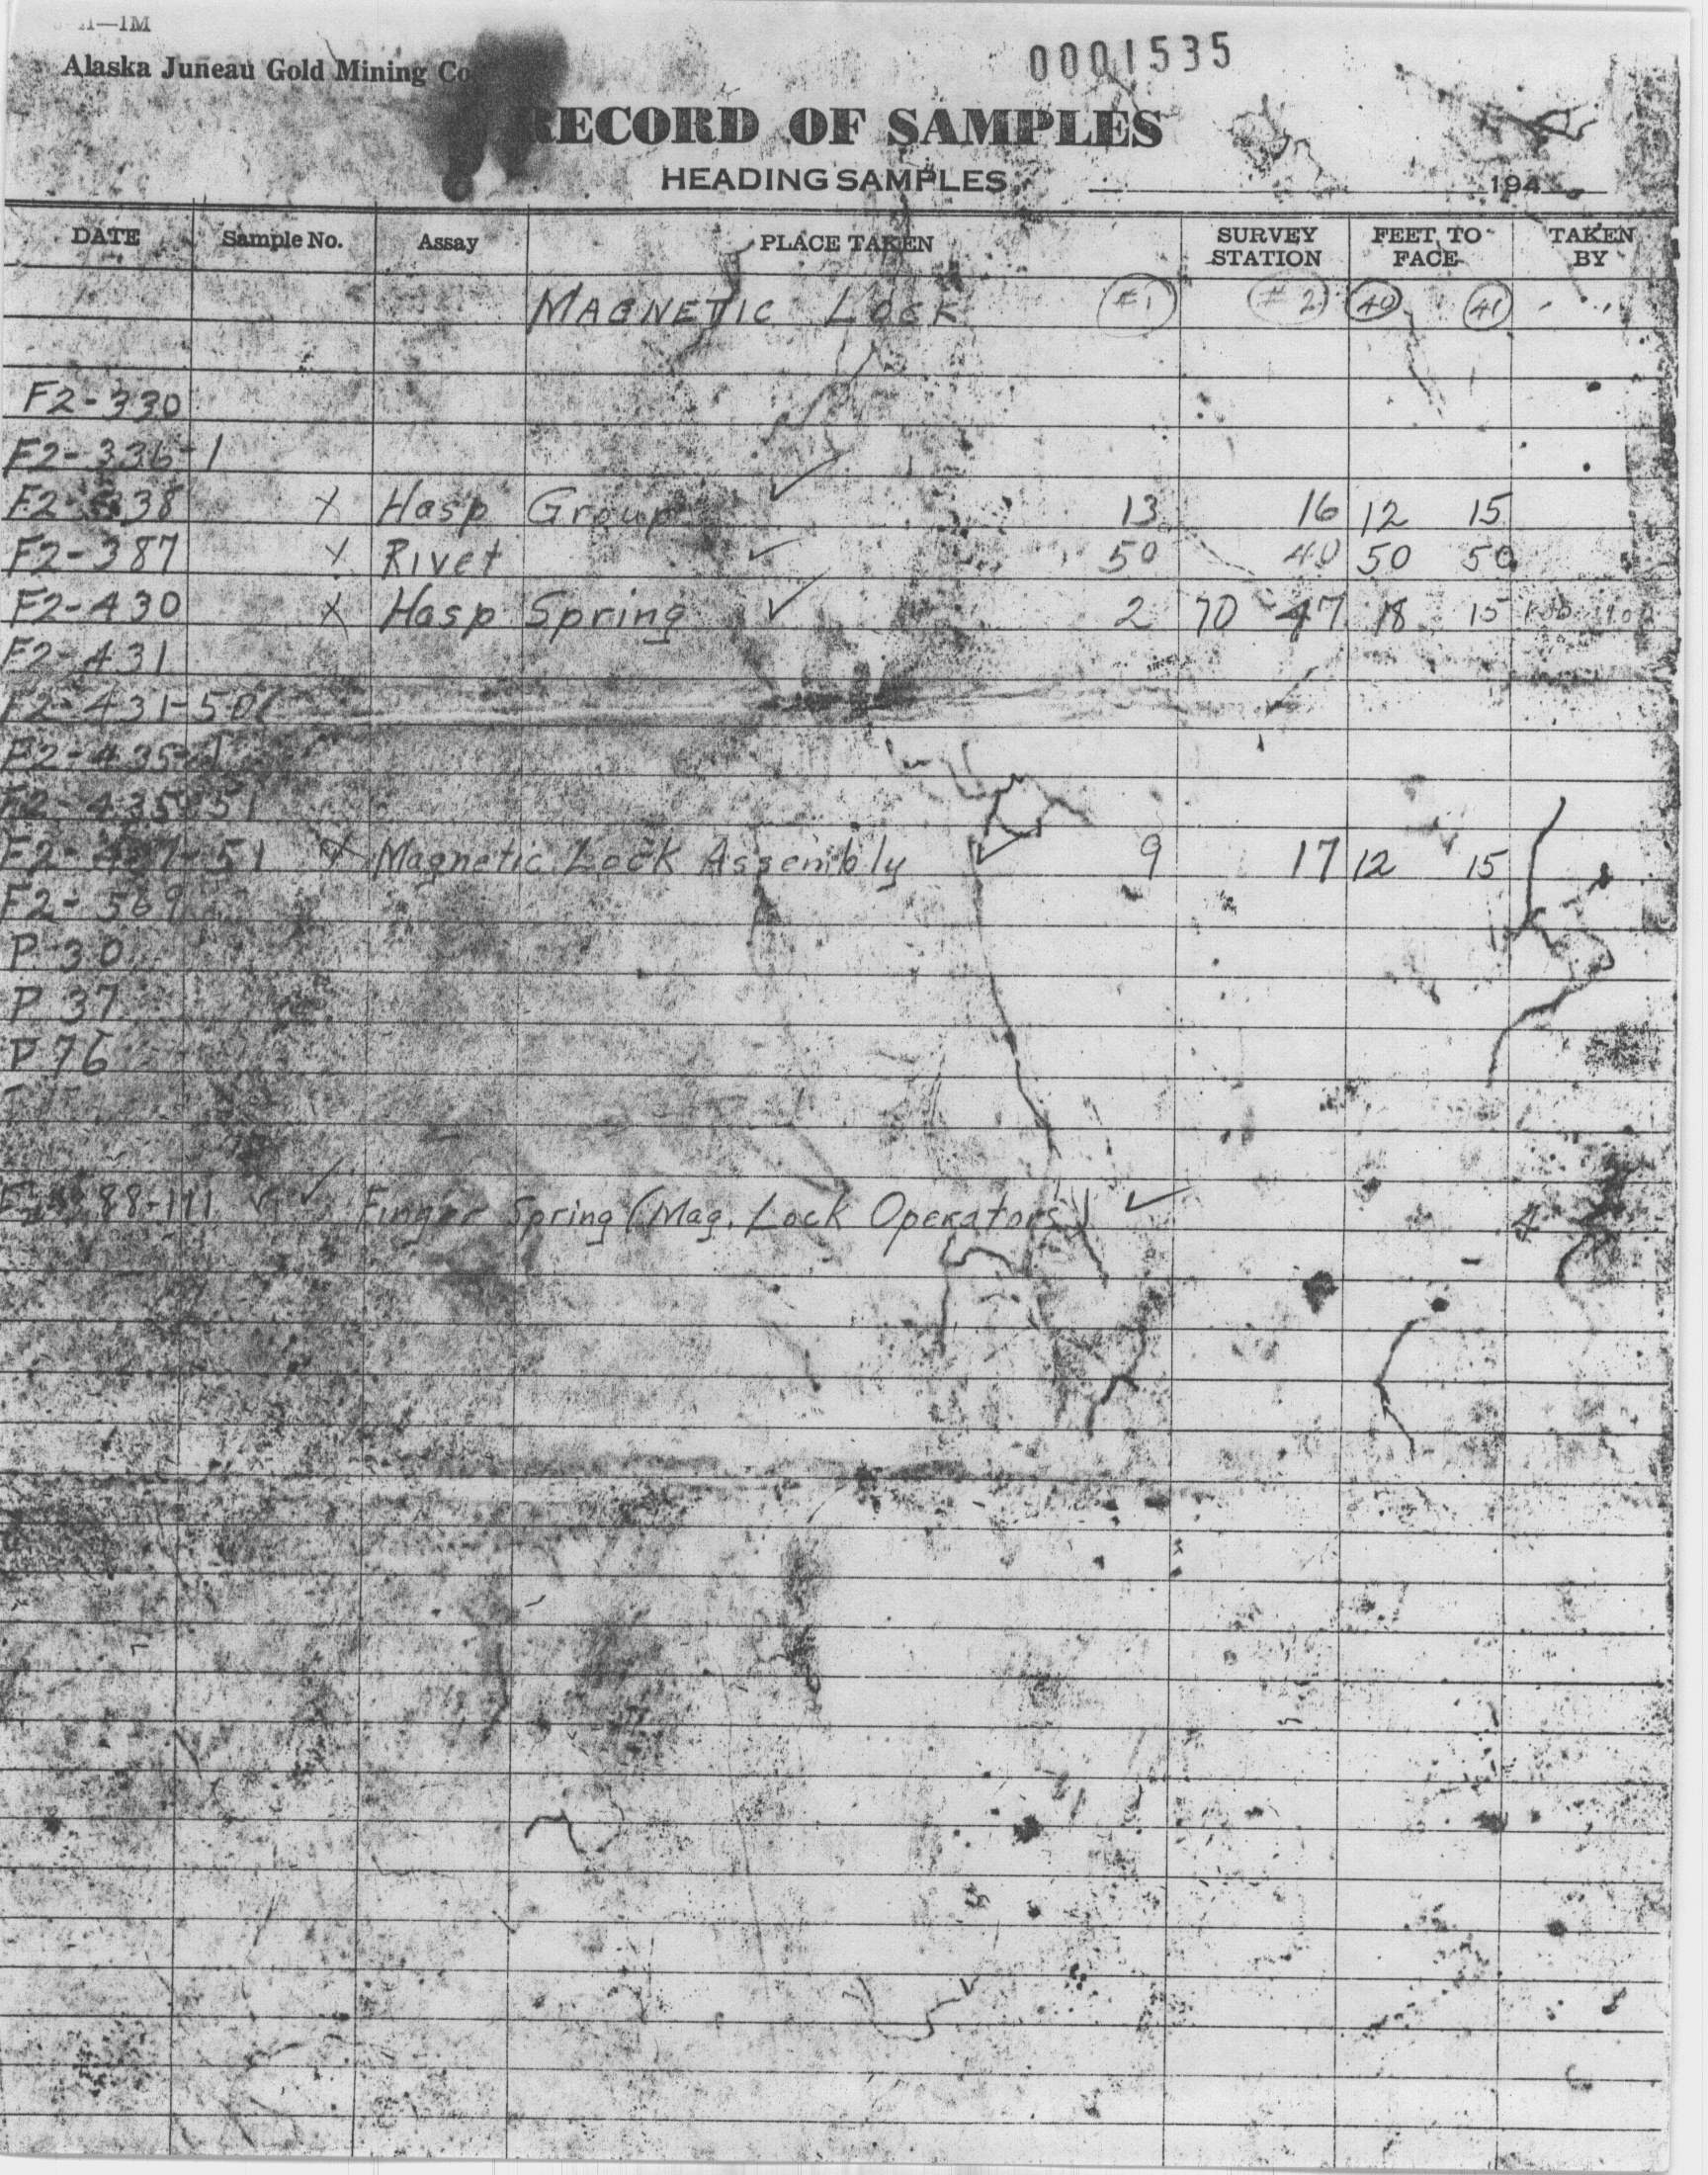 1M
Alaska Juneau Gold Mining Co
0001535
RECORD OF SAMPLES
HEADING SAMPLES 194
DATE Sample No. Assay PLACE TAKEN SURVEY STATION FEET TO FACE TAKEN BY
MAGNETIC LOCK #1 #2 40 41
F2-330
F2-336-1
F2-338 X Hasp Group ✓ 13 16 12 15
F2-387 X Rivet ✓ 50 40 50 50
F2-430 X Hasp Spring ✓ 2 70 47 18 15
F2-431
F2-431-501
F2-435-1
F2-435-51
F2-437-51 X Magnetic Lock Assembly ✓ 9 17 12 15
F2-569
P 30
P 37
P 76
88-111 ✓ Finger Spring (Mag. Lock Operators) ✓ 4